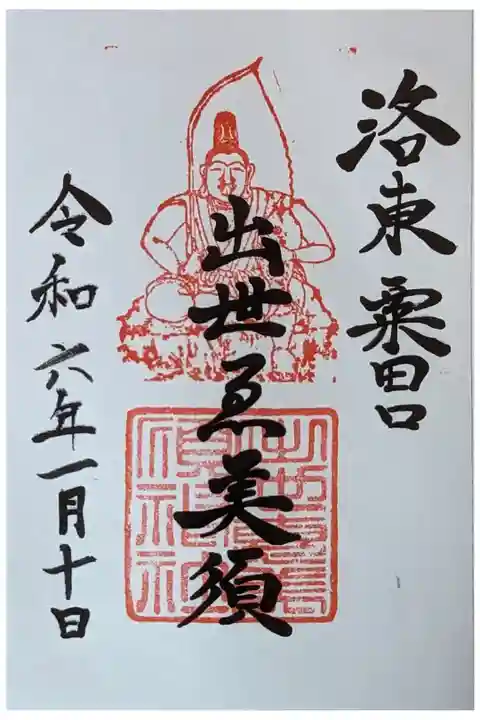 洛東 粟田口
出世ゑ美須
令和六年一月十日